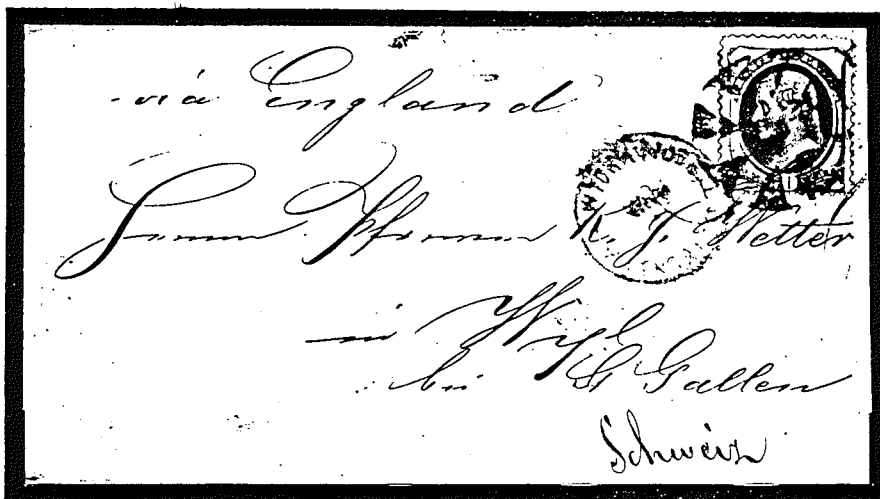 via England
Herrn Pfarrer K. J. Wetter
in Wyl
bei St Gallen
Schweiz